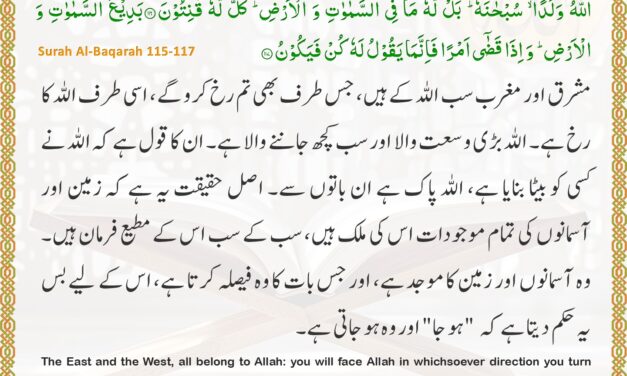 اللّٰهُ وَلَدًا ۙ سُبْحٰنَهٗ ؕ بَلْ لَّهٗ مَا فِی السَّمٰوٰتِ وَ الْاَرْضِ ؕ كُلٌّ لَّهٗ قٰنِتُوْنَ ﴿۱۱۶﴾ بَدِیْعُ السَّمٰوٰتِ وَ
الْاَرْضِ ؕ وَ اِذَا قَضٰۤی اَمْرًا فَاِنَّمَا یَقُوْلُ لَهٗ كُنْ فَیَكُوْنُ ﴿۱۱۷﴾ Surah Al-Baqarah 115-117
مشرق اور مغرب سب اللہ کے ہیں، جس طرف بھی تم رخ کرو گے، اسی طرف اللہ کا
رخ ہے۔ اللہ بڑی وسعت والا اور سب کچھ جاننے والا ہے۔ ان کا قول ہے کہ اللہ نے
کسی کو بیٹا بنایا ہے، اللہ پاک ہے ان باتوں سے۔ اصل حقیقت یہ ہے کہ زمین اور
آسمانوں کی تمام موجودات اس کی ملک ہیں، سب کے سب اس کے مطیع فرمان ہیں۔
وہ آسمانوں اور زمین کا موجد ہے، اور جس بات کا وہ فیصلہ کرتا ہے، اس کے لیے بس
یہ حکم دیتا ہے کہ "ہو جا" اور وہ ہو جاتی ہے۔
The East and the West, all belong to Allah: you will face Allah in whichsoever direction you turn